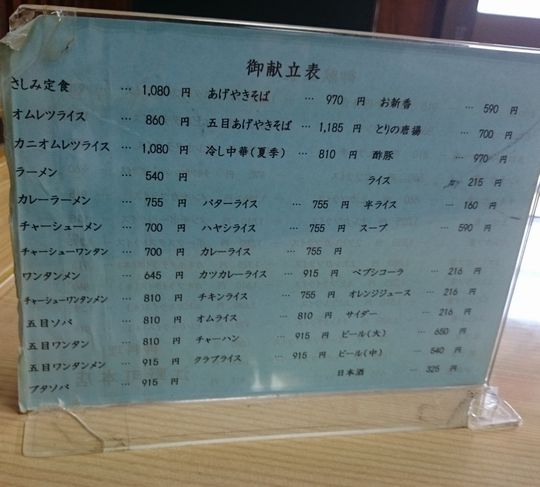 御献立表
さしみ定食 … 1,080 円
オムレツライス … 860 円
カニオムレツライス … 1,080 円
ラーメン … 540 円
カレーラーメン … 755 円
チャーシューメン … 700 円
チャーシューワンタン … 700 円
ワンタンメン … 645 円
チャーシューワンタンメン … 810 円
五目ソバ … 810 円
五目ワンタン … 810 円
五目ワンタンメン … 915 円
ブタソバ … 915 円
あげやきそば … 970 円
五目あげやきそば … 1,185 円
冷し中華(夏季) … 810 円
バターライス … 755 円
ハヤシライス … 755 円
カレーライス … 755 円
カツカレーライス … 915 円
チキンライス … 755 円
オムライス … 810 円
チャーハン … 915 円
クラブライス … 915 円
お新香 … 590 円
とりの唐揚 … 700 円
酢豚 … 970 円
ライス … 215 円
半ライス … 160 円
スープ … 590 円
ペプシコーラ … 216 円
オレンジジュース … 216 円
サイダー … 216 円
ビール(大) … 650 円
ビール(中) … 540 円
日本酒 … 325 円